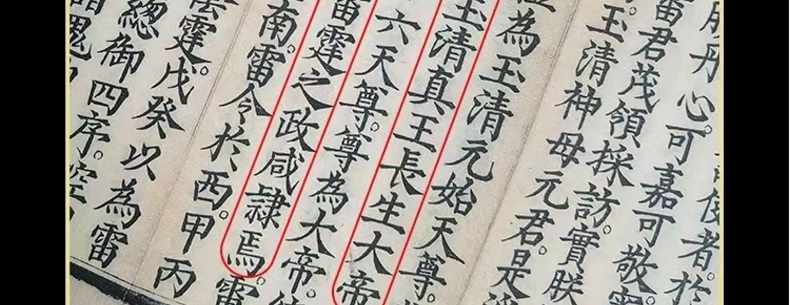 朋丹心可嘉可敬
雷君茂領採訪實朕
玉清神母元君是
為玉清元始天尊
玉清真王長生大帝
六天尊尊為大帝
雷霆之政咸隸焉雷
南雷令於西甲丙
霆戊癸以為雷
總御四序